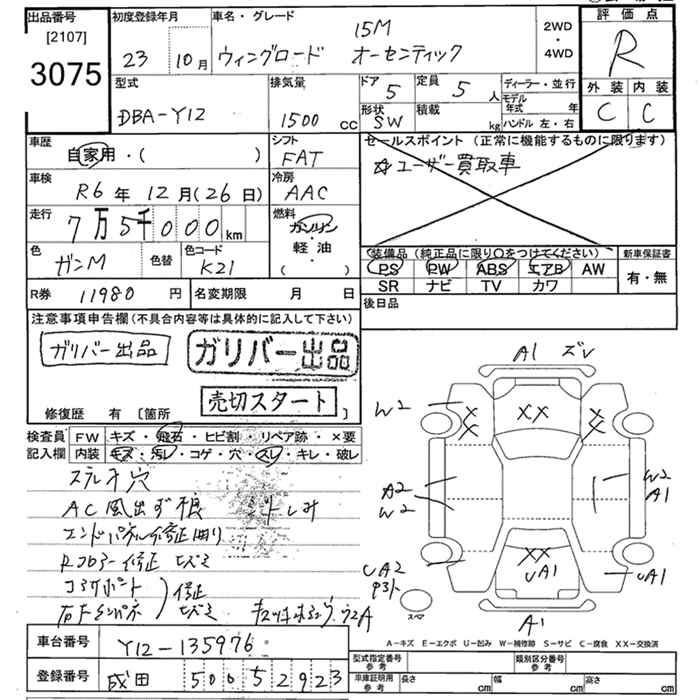 出品番号
[2107]
3075
初度登録年月
23 10月
車名・グレード
15M
ウィングロード オーセンティック
2WD
・
4WD
評価点
R
外装 内装
C C
型式
DBA-Y12
排気量
1500 cc
ドア
5
定員
5 人
形状
SW
積載
kg
ディーラー・並行
モデル年式 年
ハンドル 左・右
車歴
自家用・( )
シフト
FAT
車検
R6年 12月(26日)
冷房
AAC
走行
7万5千000km
燃料
ガソリン
軽・油
( )
色
ガンM
色替
色コード
K21
セールスポイント(正常に機能するものに限ります)
☆ユーザー買取車
装備品(純正品に限り○をつけてください)
PS PW ABS エアB AW
SR ナビ TV カワ
新車保証書
有・無
R券 11980 円
名変期限 月 日
後日品
注意事項申告欄(不具合内容等は具体的に記入して下さい)
ガリバー出品
ガリバー出品
売切スタート
修復歴 有 [箇所 ]
検査員記入欄
FW キズ・飛石・ヒビ割・リペア跡・×要
内装 キズ・汚レ・コゲ・穴・スレ・キレ・破レ
AC風出ず
エンドパネル修正曲り
修正
コアサポート
修正
A1 ズレ
W2
XX
A2
W2
W2
A1
UA2
XX
UA1
UA1
スペア
A1
A-キズ E-エクボ U-凹み W-補修跡 S-サビ C-腐食 XX-交換済
車台番号
Y12-135976
登録番号
成田 500 5 2923
型式指定番号
参考
類別区分番号
参考
車庫証明用
参考
長さ cm 幅 cm 高さ cm